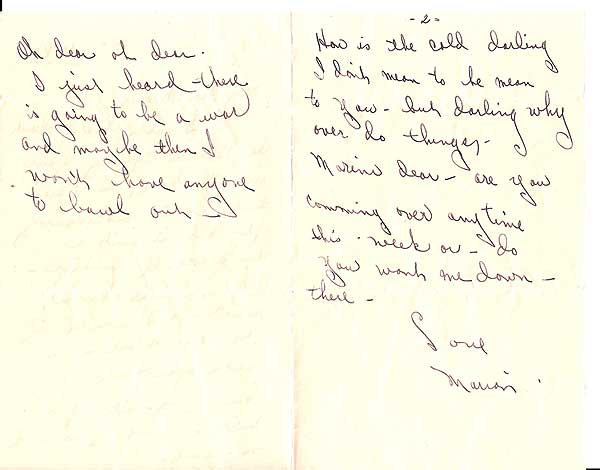 Oh dear oh dear.
I just heard there
is going to be a war
and maybe then I
won't have anyone
to bawl out
- 2 -
How is the cold darling
I don't mean to be mean
to you - but darling why
over do things -
dear - are you
comming over anytime
this week or - do
you want me down -
there -
Love
Marion